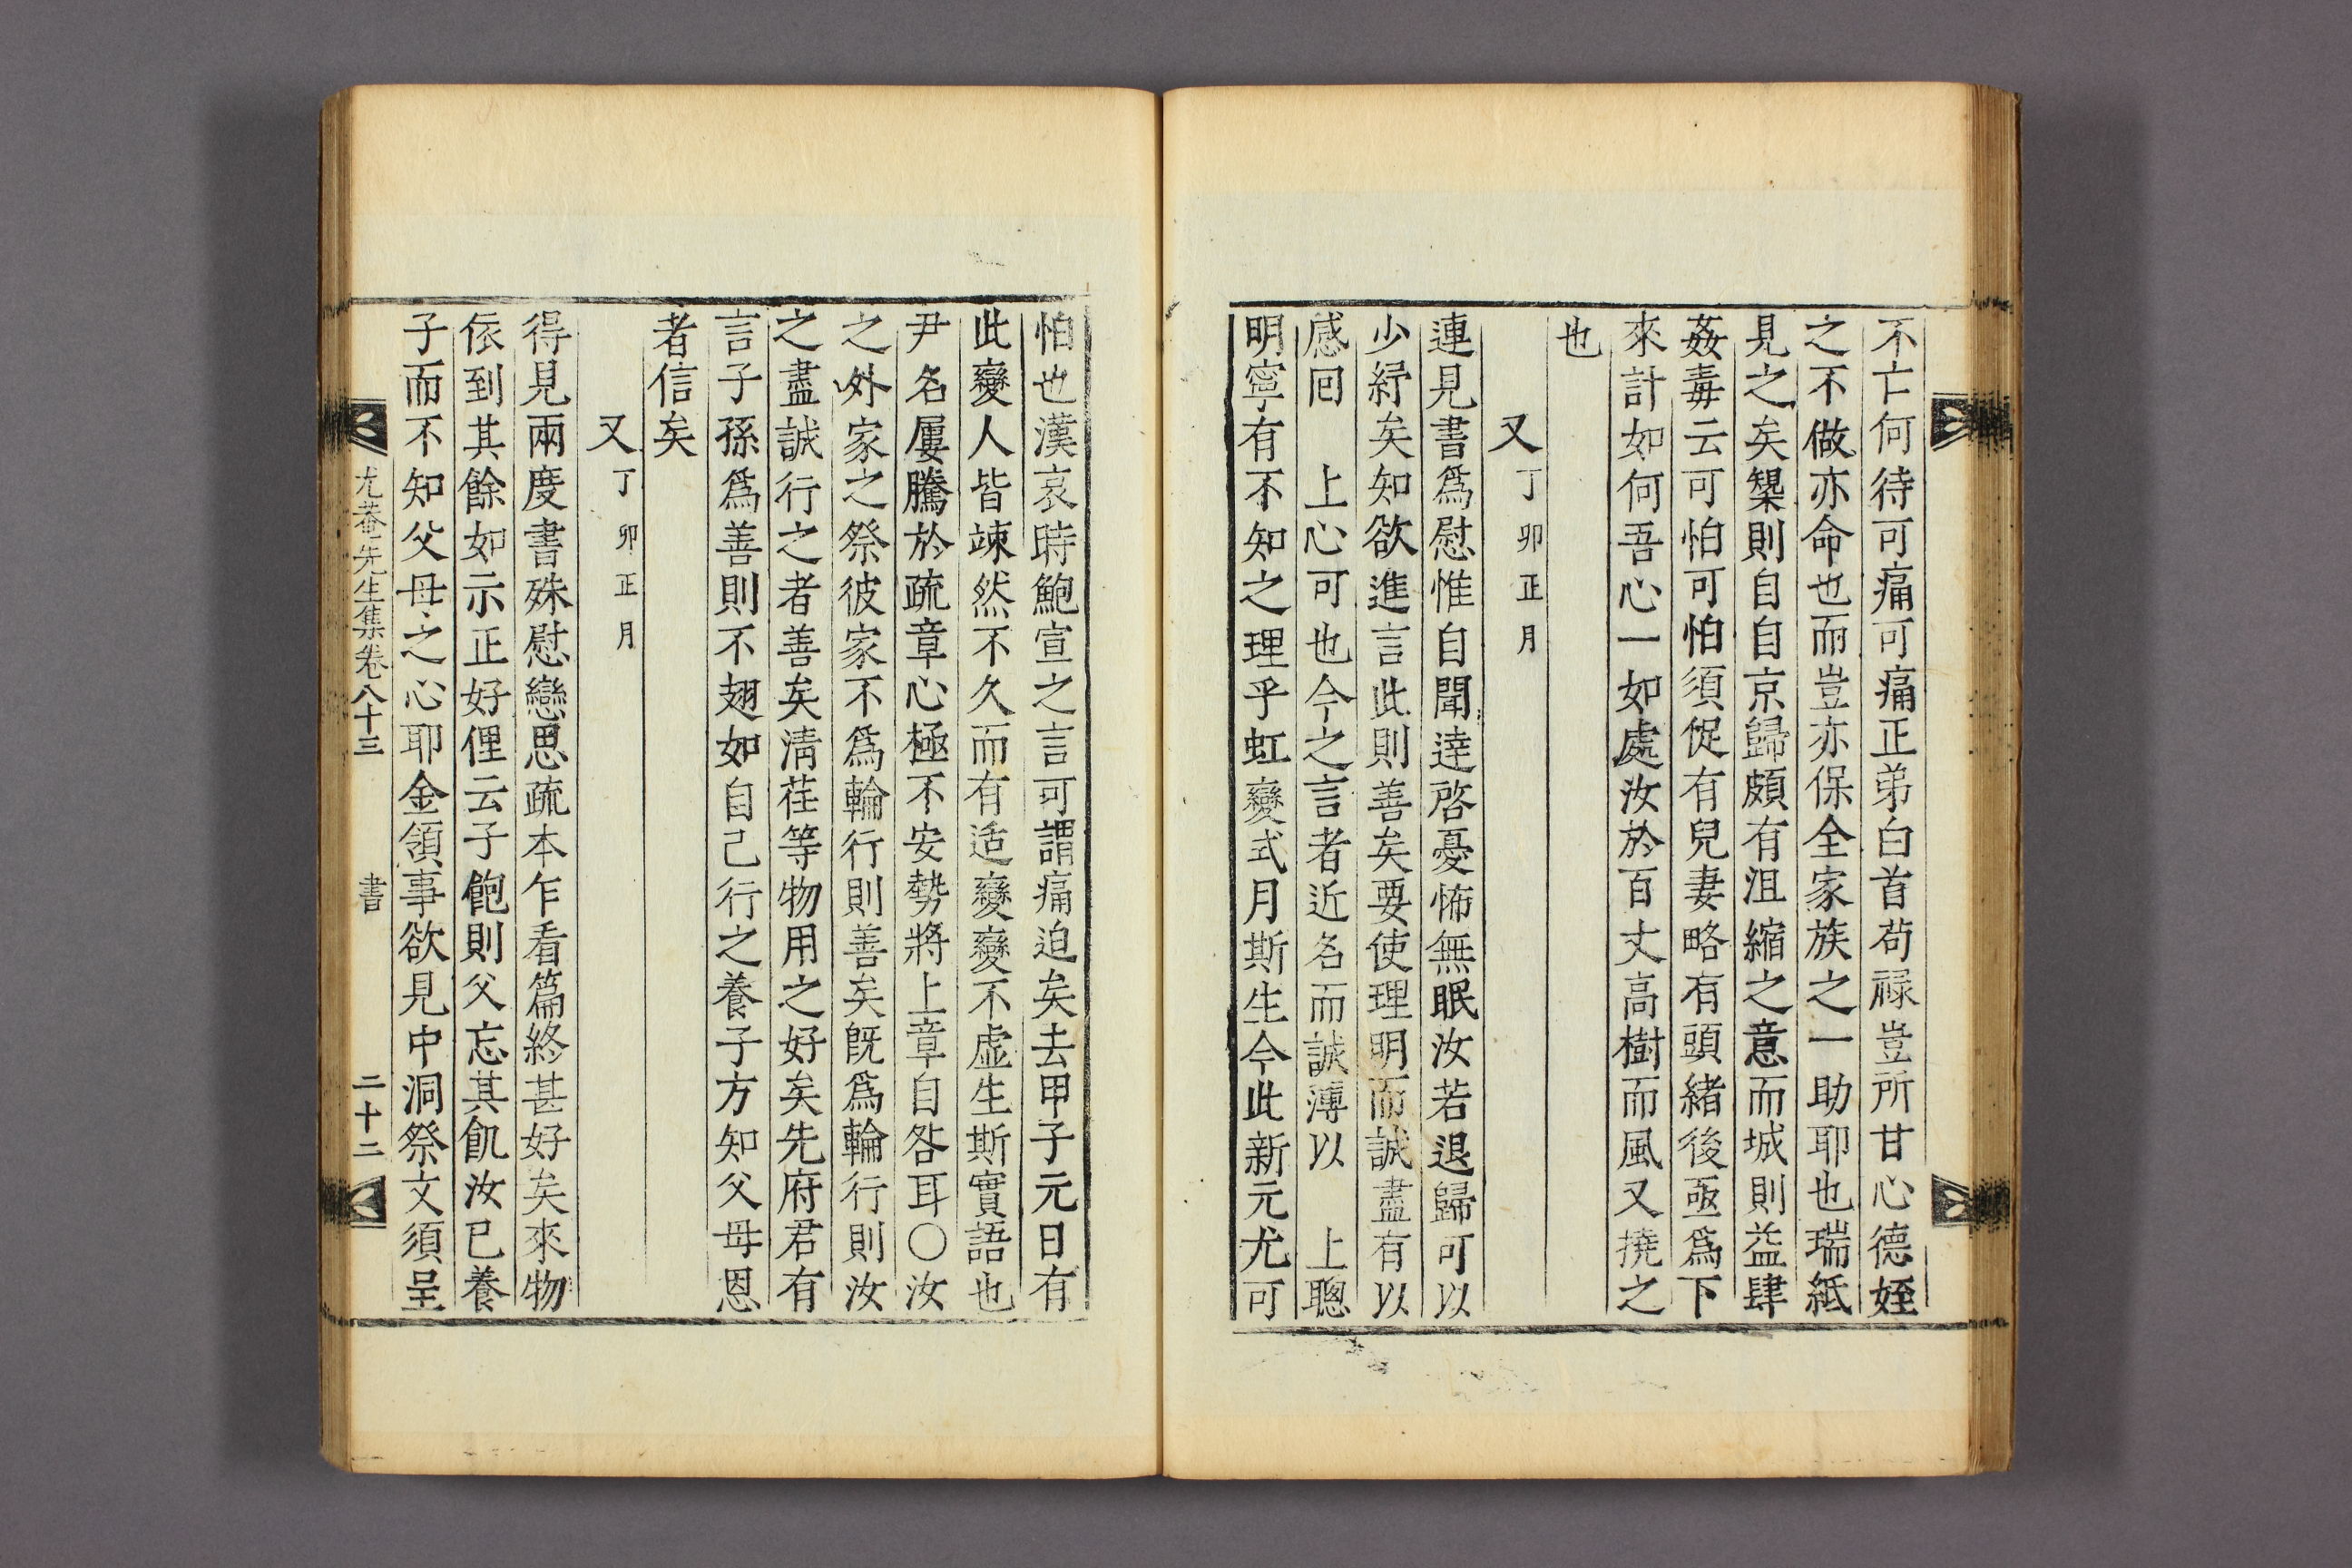 不亡何待可痛可痛正弟白首苟祿豈所甘心德姪
之不做亦命也而豈亦保全家族之一助耶也瑞紙
見之矣槩則自自京歸頗有沮縮之意而城則益肆
姦毒云可怕可怕須促有兒妻略有頭緖後亟爲下
來計如何吾心一如處汝於百丈高樹而風又撓之
也
又丁卯正月
連見書爲慰惟自聞達啓憂怖無眠汝若退歸可以
少紓矣知欲進言此則善矣要使理明而誠盡有以
感回　上心可也今之言者近名而誠薄以　上聰
明寧有不知之理乎虹變式月斯生今此新元尤可
怕也漢哀時鮑宣之言可謂痛迫矣去甲子元日有
此變人皆竦然不久而有适變變不虛生斯實語也
尹名屢騰於疏章心極不安勢將上章自咎耳〇汝
之外家之祭彼家不爲輪行則善矣旣爲輪行則汝
之盡誠行之者善矣淸荏等物用之好矣先府君有
言子孫爲善則不翅如自己行之養子方知父母恩
者信矣
又丁卯正月
得見兩度書殊慰戀思疏本乍看篇終甚好矣來物
依到其餘如示正好俚云子飽則父忘其飢汝已養
子而不知父母之心耶金領事欲見中洞祭文須呈
尤菴先生集卷八十三　書　二十二